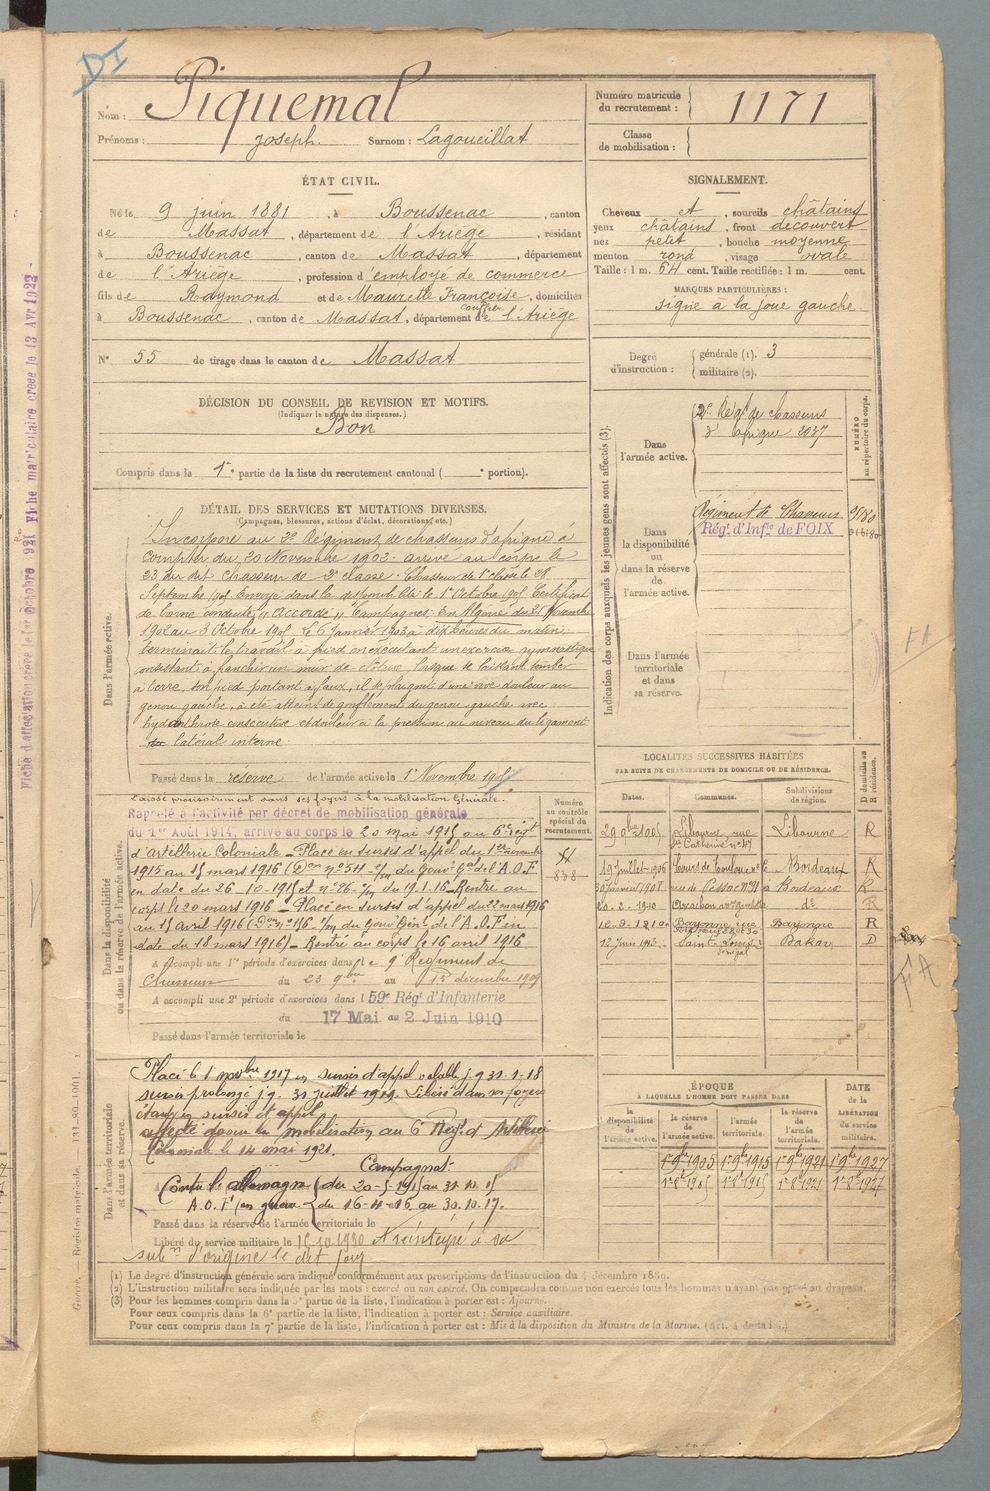 DI
Nom : Piquemal
Prénoms : Joseph. Surnom : Lagoueillat
Numéro matricule
du recrutement : 1171
Classe
de mobilisation :
ÉTAT CIVIL.
Né le 9 juin 1881, à Boussenac, canton
de Massat, département de l'Ariège, résidant
à Boussenac, canton de Massat, département
de l'Ariège, profession d'employé de commerce
fils de Raymond et de Maurette Françoise, domiciliés
à Boussenac, canton de Massat, département de l'Ariège
N° 55 de tirage dans le canton de Massat
SIGNALEMENT.
Cheveux et, sourcils châtains
yeux châtains, front découvert
nez petit, bouche moyenne
menton rond, visage ovale
Taille : 1 m. 64 cent. Taille rectifiée : 1 m. cent.
MARQUES PARTICULIÈRES :
signe à la joue gauche.
Degré
d'instruction :
générale (1). 3
militaire (2).
DÉCISION DU CONSEIL DE REVISION ET MOTIFS.
(Indiquer la nature des dispenses.)
Bon
Compris dans la 1re partie de la liste du recrutement cantonal ( e portion).
DÉTAIL DES SERVICES ET MUTATIONS DIVERSES.
(Campagnes, blessures, actions d'éclat, décorations, etc.)
Dans l'armée active.
Incorporé au 2e Régiment de chasseurs d'afrique à
compter du 20 Novembre 1902. arrivé au corps le
23 du dit Chasseur de 2e classe. Chasseur de 1e classe le 28
Septembre 1905. Envoyé dans la disponibilité le 1er Octobre 1905. Certificat
de bonne conduite "Accordé". Campagnes: En Algérie du 21 Novembre
1902 au 3 Octobre 1905. Le 6 Janvier 1903 à dix heures du matin,
terminait le travail à pied en exécutant un exercice gymnastique
consistant à franchir un mur de clôture, lorsque se laissant tomber
à terre, son pied portant à faux, il se plaignit d'une vive douleur au
genou gauche, a été atteint de gonflement du genou gauche avec
hydarthrose consécutive et douleur à la pression au niveau du ligament
latéral interne
Passé dans la réserve de l'armée active le 1er Novembre 1905
Indication des corps auxquels les jeunes gens sont affectés (3).
NUMÉRO
au répertoire du corps.
Dans
l'armée active.
2e Régt de Chasseurs
d'Afrique 2037
Dans
la disponibilité
ou
dans la réserve
de
l'armée active.
Régiment de Chasseurs
Régt d'Infie de FOIX
Dans l'armée
territoriale
et dans
sa réserve.
FA
Dans la disponibilité
ou dans la réserve de l'armée active.
Laissé provisoirement dans ses foyers à la mobilisation Générale.
Rappelé à l'activité par décret de mobilisation générale
du 1er Août 1914, arrivé au corps le 20 mai 1915 au 6e régt
d'Artillerie Coloniale _ Placé en sursis d'appel du 1er novembre
1915 au 15 mars 1916 (Don n° 511 du Gouvr Gal de l'A.O.F
en date du 26-10-1915 et n° 26 du 19.1.16 _ Rentré au
corps le 20 mars 1916 _ Placé en sursis d'appel du 22 mars 1916
au 15 avril 1916 du Gouvr Génl de l'A.O.F en
date du 18 mars 1916) _ Rentré au corps le 16 avril 1916
A accompli une 1re période d'exercices dans le 9e Régiment de
Chasseurs du 23 9bre au 15 décembre 1909
A accompli une 2e période d'exercices dans l 59e Régt d'Infanterie
du 17 Mai au 2 Juin 1910
Passé dans l'armée territoriale le
Numéro
au contrôle
spécial du
recrutement.
838
LOCALITÉS SUCCESSIVES HABITÉES
PAR SUITE DE CHANGEMENTS DE DOMICILE OU DE RÉSIDENCE.
Dates. Communes. Subdivisions de région. D domicile ou R résidence.
29 Obre 1905 Libourne, rue Ste Catherine n° 47 Libourne R
19 Juillet 1906 Cours de Toulouse Bordeaux R
30 Janvier 1908 rue de Pessac n° 91 à Bordeaux R
20-2-1910 Arcachon av. Gambetta do R
Bayonne Bayonne R
12 Juin 1913 Saint-Louis Sénégal Dakar D
Dans l'armée territoriale
et dans sa réserve.
Placé le 1 novbre 1917 en sursis d'appel valable jq 31-1-18
sursis prolongé jq. 31 juillet 1919. Libéré dans ses foyers
étant en sursis d'appel
affecté pour la mobilisation au 6 Régt d'Artillerie
Coloniale le 14 mai 1921.
Campagnes:
Contre l'Allemagne du 20-5-1915 au 31.10.15
A.O.F en guerre du 16-4-16 au 30.10.17.
Passé dans la réserve de l'armée territoriale le
Libéré du service militaire le 15.10.1930 Réintégré à sa
subon d'origine le dit jour
ÉPOQUE
À LAQUELLE L'HOMME DOIT PASSER DANS
la disponibilité de l'armée active.
la réserve de l'armée active.
l'armée territoriale.
la réserve de l'armée territoriale.
DATE de la LIBÉRATION du service militaire.
1er 9bre 1905 1er 9bre 1915 1er 9bre 1921 1er 9bre 1927
1er 8bre 1915 1er 8bre 1915 1er 8bre 1921 1er 8bre 1927
(1) Le degré d'instruction générale sera indiqué conformément aux prescriptions de l'instruction du 4 décembre 1889.
(2) L'instruction militaire sera indiquée par les mots : exercé ou non exercé. On comprendra comme non exercés tous les hommes n'ayant pas passé au drapeau.
(3) Pour les hommes compris dans la 5e partie de la liste, l'indication à porter est : Ajourné.
Pour ceux compris dans la 6e partie de la liste, l'indication à porter est : Service auxiliaire.
Pour ceux compris dans la 7e partie de la liste, l'indication à porter est : Mis à la disposition du Ministre de la Marine.
Fiche matriculaire créée le 13 Avr 1923
Registre matricule.